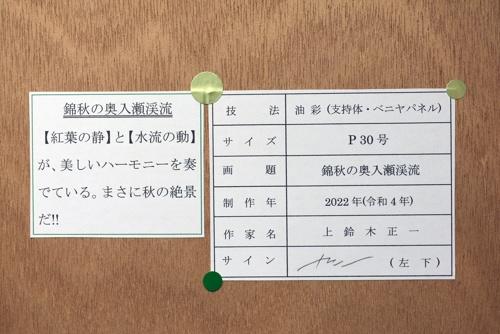 錦秋の奥入瀬渓流
【紅葉の静】と【水流の動】
が、美しいハーモニーを奏
でている。まさに秋の絶景
だ!!
技法 油彩(支持体・ベニヤパネル)
サイズ P30号
画題 錦秋の奥入瀬渓流
制作年 2022年(令和4年)
作家名 上鈴木正一
サイン (左下)